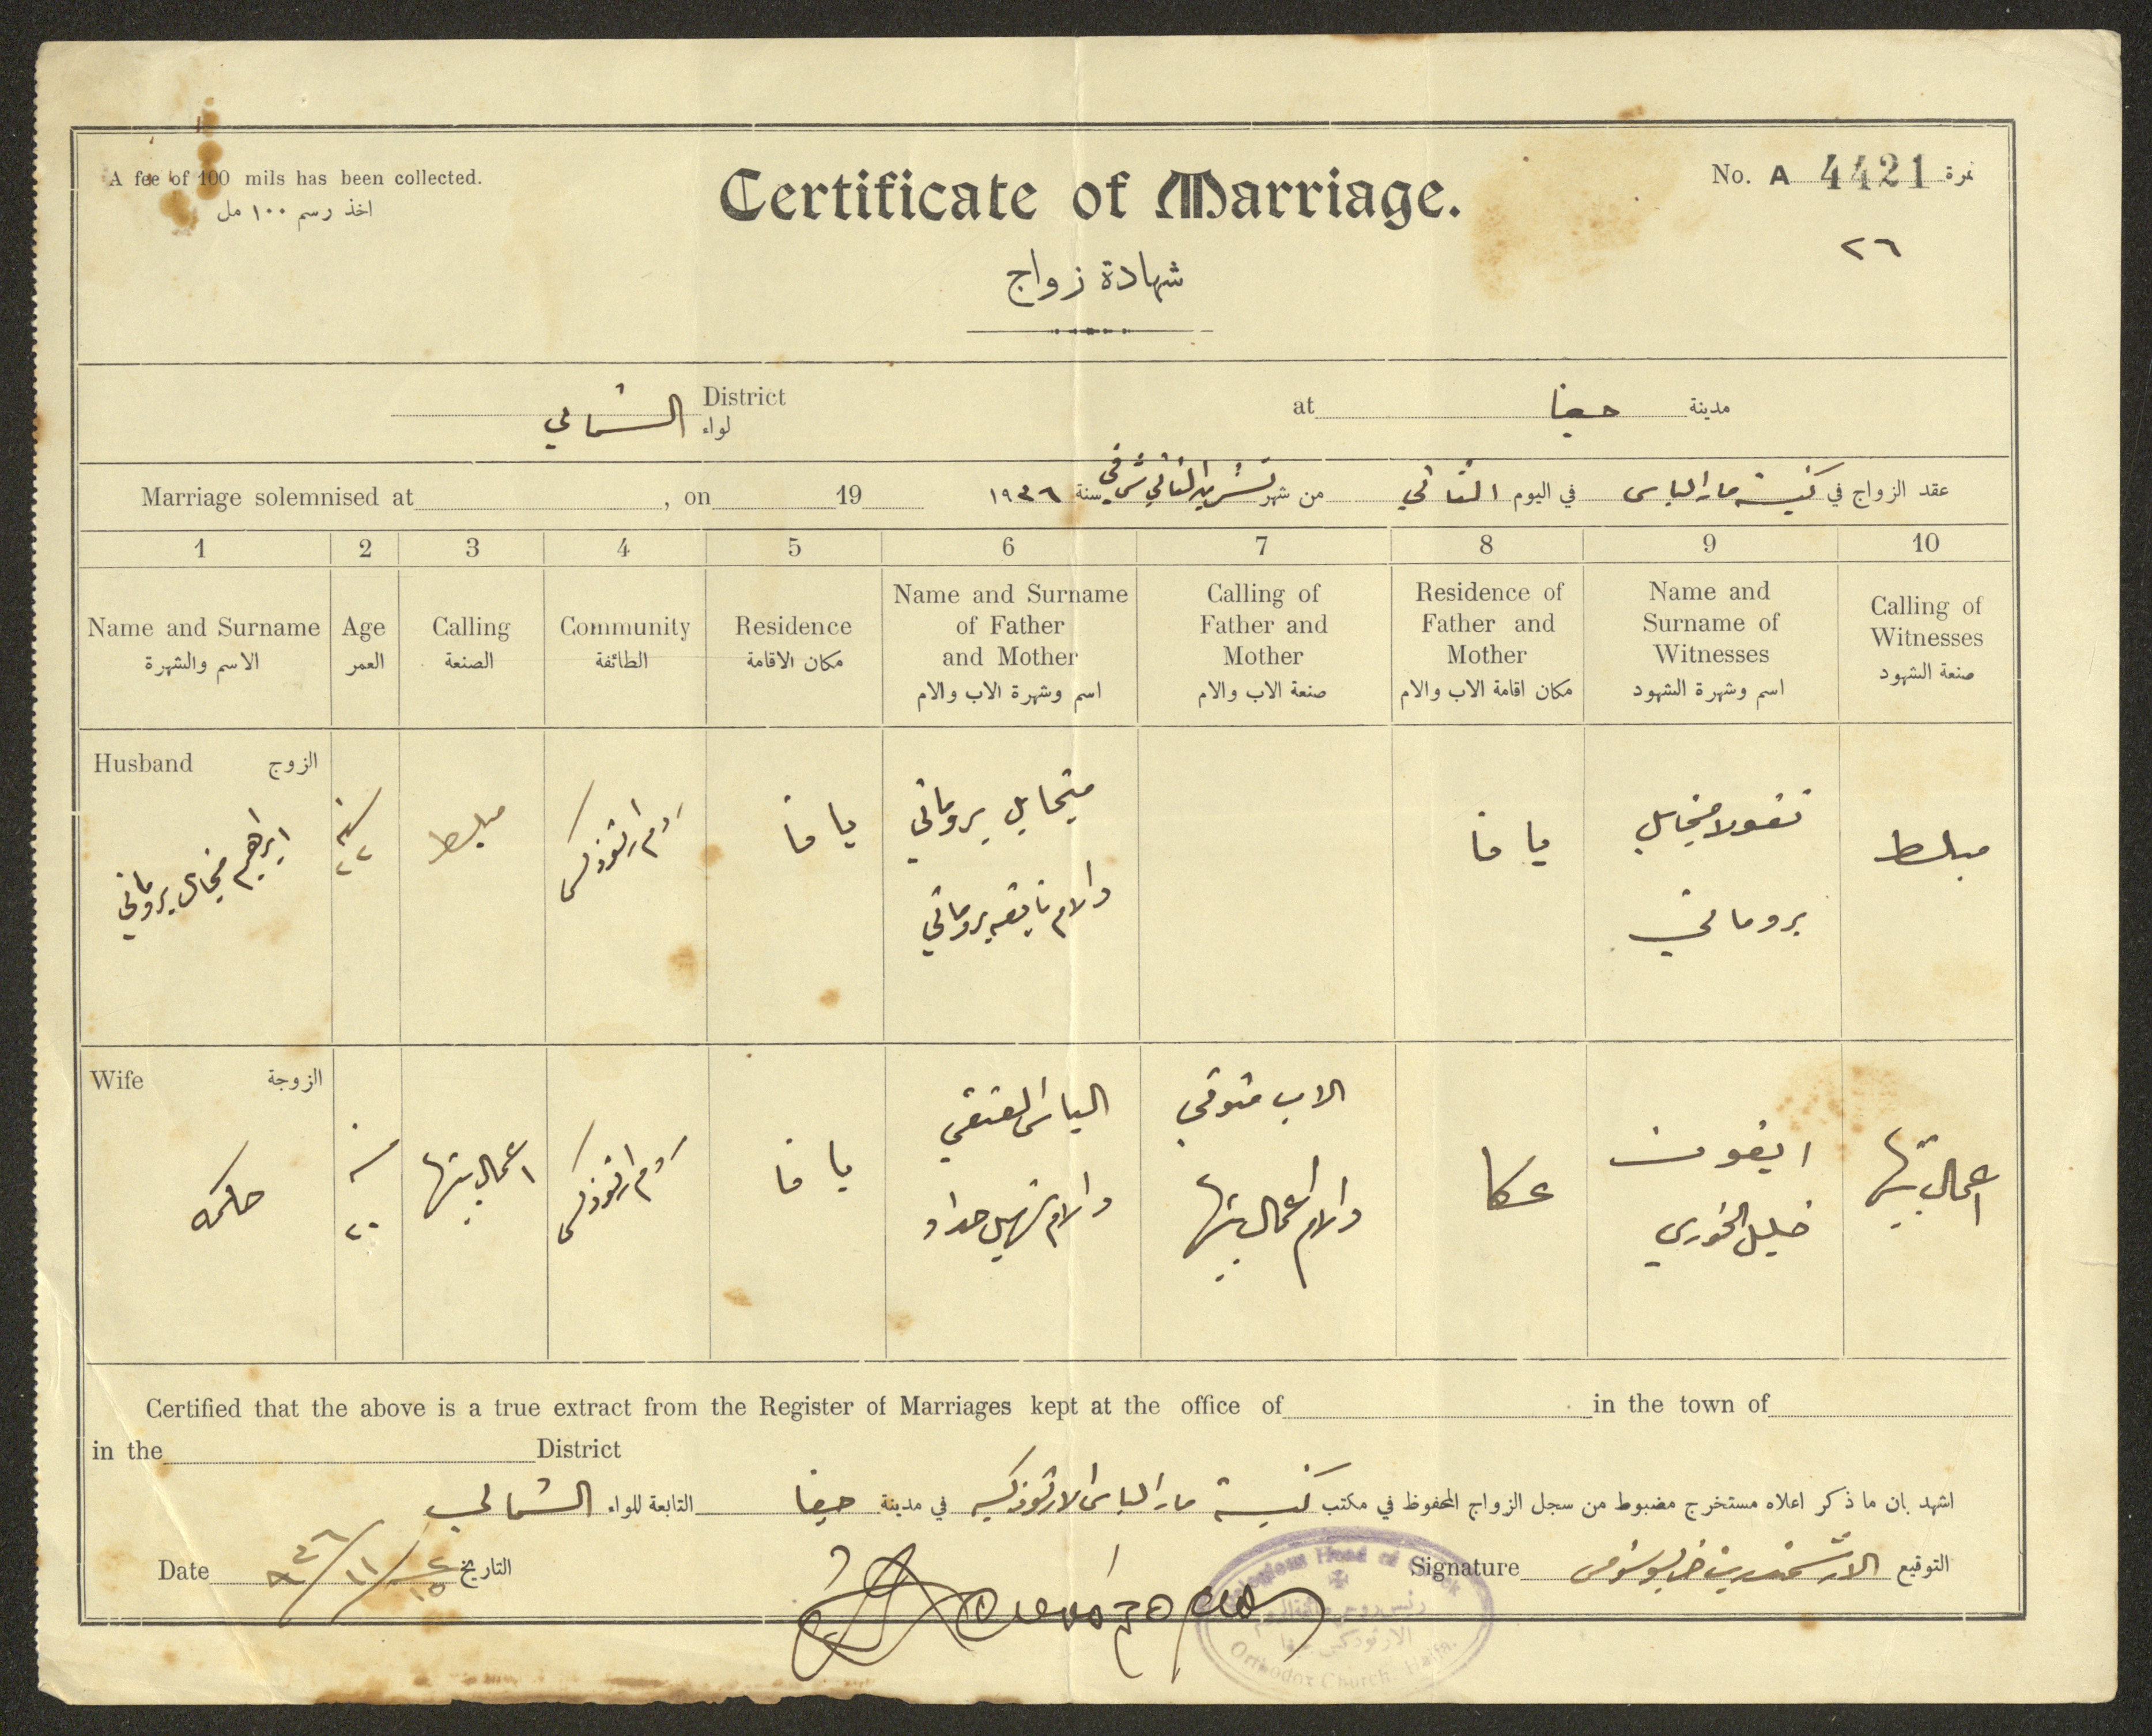 A fee of 100 mils has been collected.
اخذ رسم ١٠٠ مل
Certificate of Marriage.
شهادة زواج
No. A 4421 نمرة
٢٦
District لواء الشمالي
at حيفا مدينة
Marriage solemnised at , on 19
عقد الزواج في كنيسة مار الياس في اليوم الثاني من شهر تشرين الثاني شرقي سنة ١٩٣٦
1 2 3 4 5 6 7 8 9 10
Name and Surname الاسم والشهرة
Age العمر
Calling الصنعة
Community الطائفة
Residence مكان الاقامة
Name and Surname of Father and Mother اسم وشهرة الاب والام
Calling of Father and Mother صنعة الاب والام
Residence of Father and Mother مكان اقامة الاب والام
Name and Surname of Witnesses اسم وشهرة الشهود
Calling of Witnesses صنعة الشهود
Husband الزوج
ابراهيم ميخائيل بروماني
سنة ٢٢
مبلط
روم ارثوذكس
يافا
ميخايل بروماني
والام نايفه بروماني
يافا
نقولا ميخايل
بروماني
مبلط
Wife الزوجة
حلمه
سنة ٢٠
اعمال بيتها
روم ارثوذكس
يافا
الياس
والام حداد
الاب متوفي
والام اعمال بيتها
عكا
خليل الخوري
اعمال بيتها
Certified that the above is a true extract from the Register of Marriages kept at the office of in the town of
in the District
اشهد بان ما ذكر اعلاه مستخرج مضبوط من سجل الزواج المحفوظ في مكتب كنيسة مار الياس الارثوذكسيه في مدينة حيفا التابعة للواء الشمالي
Date ٣٦/١١/ التاريخ
Signature الارشمندريت التوقيع
Religious Head of Greek
Orthodox Church. Haifa.